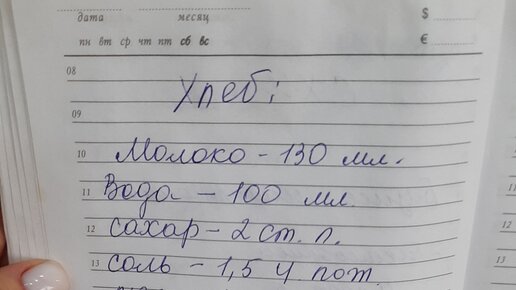 дата месяц $
пн вт ср чт пт сб вс €
08
Хлеб:
09
10 Молоко - 130 мл.
11 Вода - 100 мл.
12 сахар - 2 ст. л.
13 соль - 1,5 ч лож.
10
11
12
13